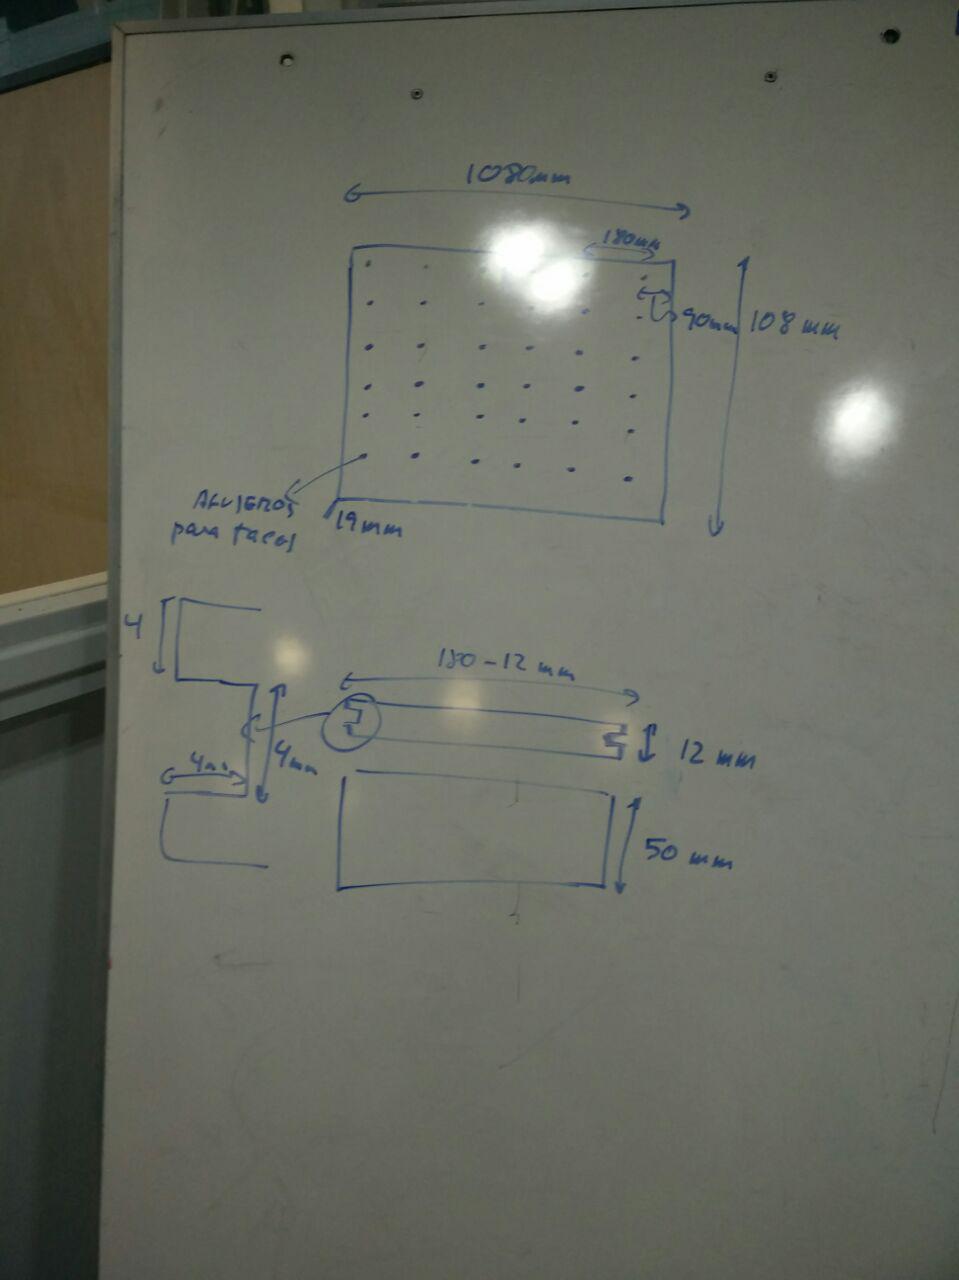 1080mm
180mm
90mm
108 mm
AGUJEROS
para tacos
19mm
4
180-12 mm
4mm
4mm
12 mm
50 mm